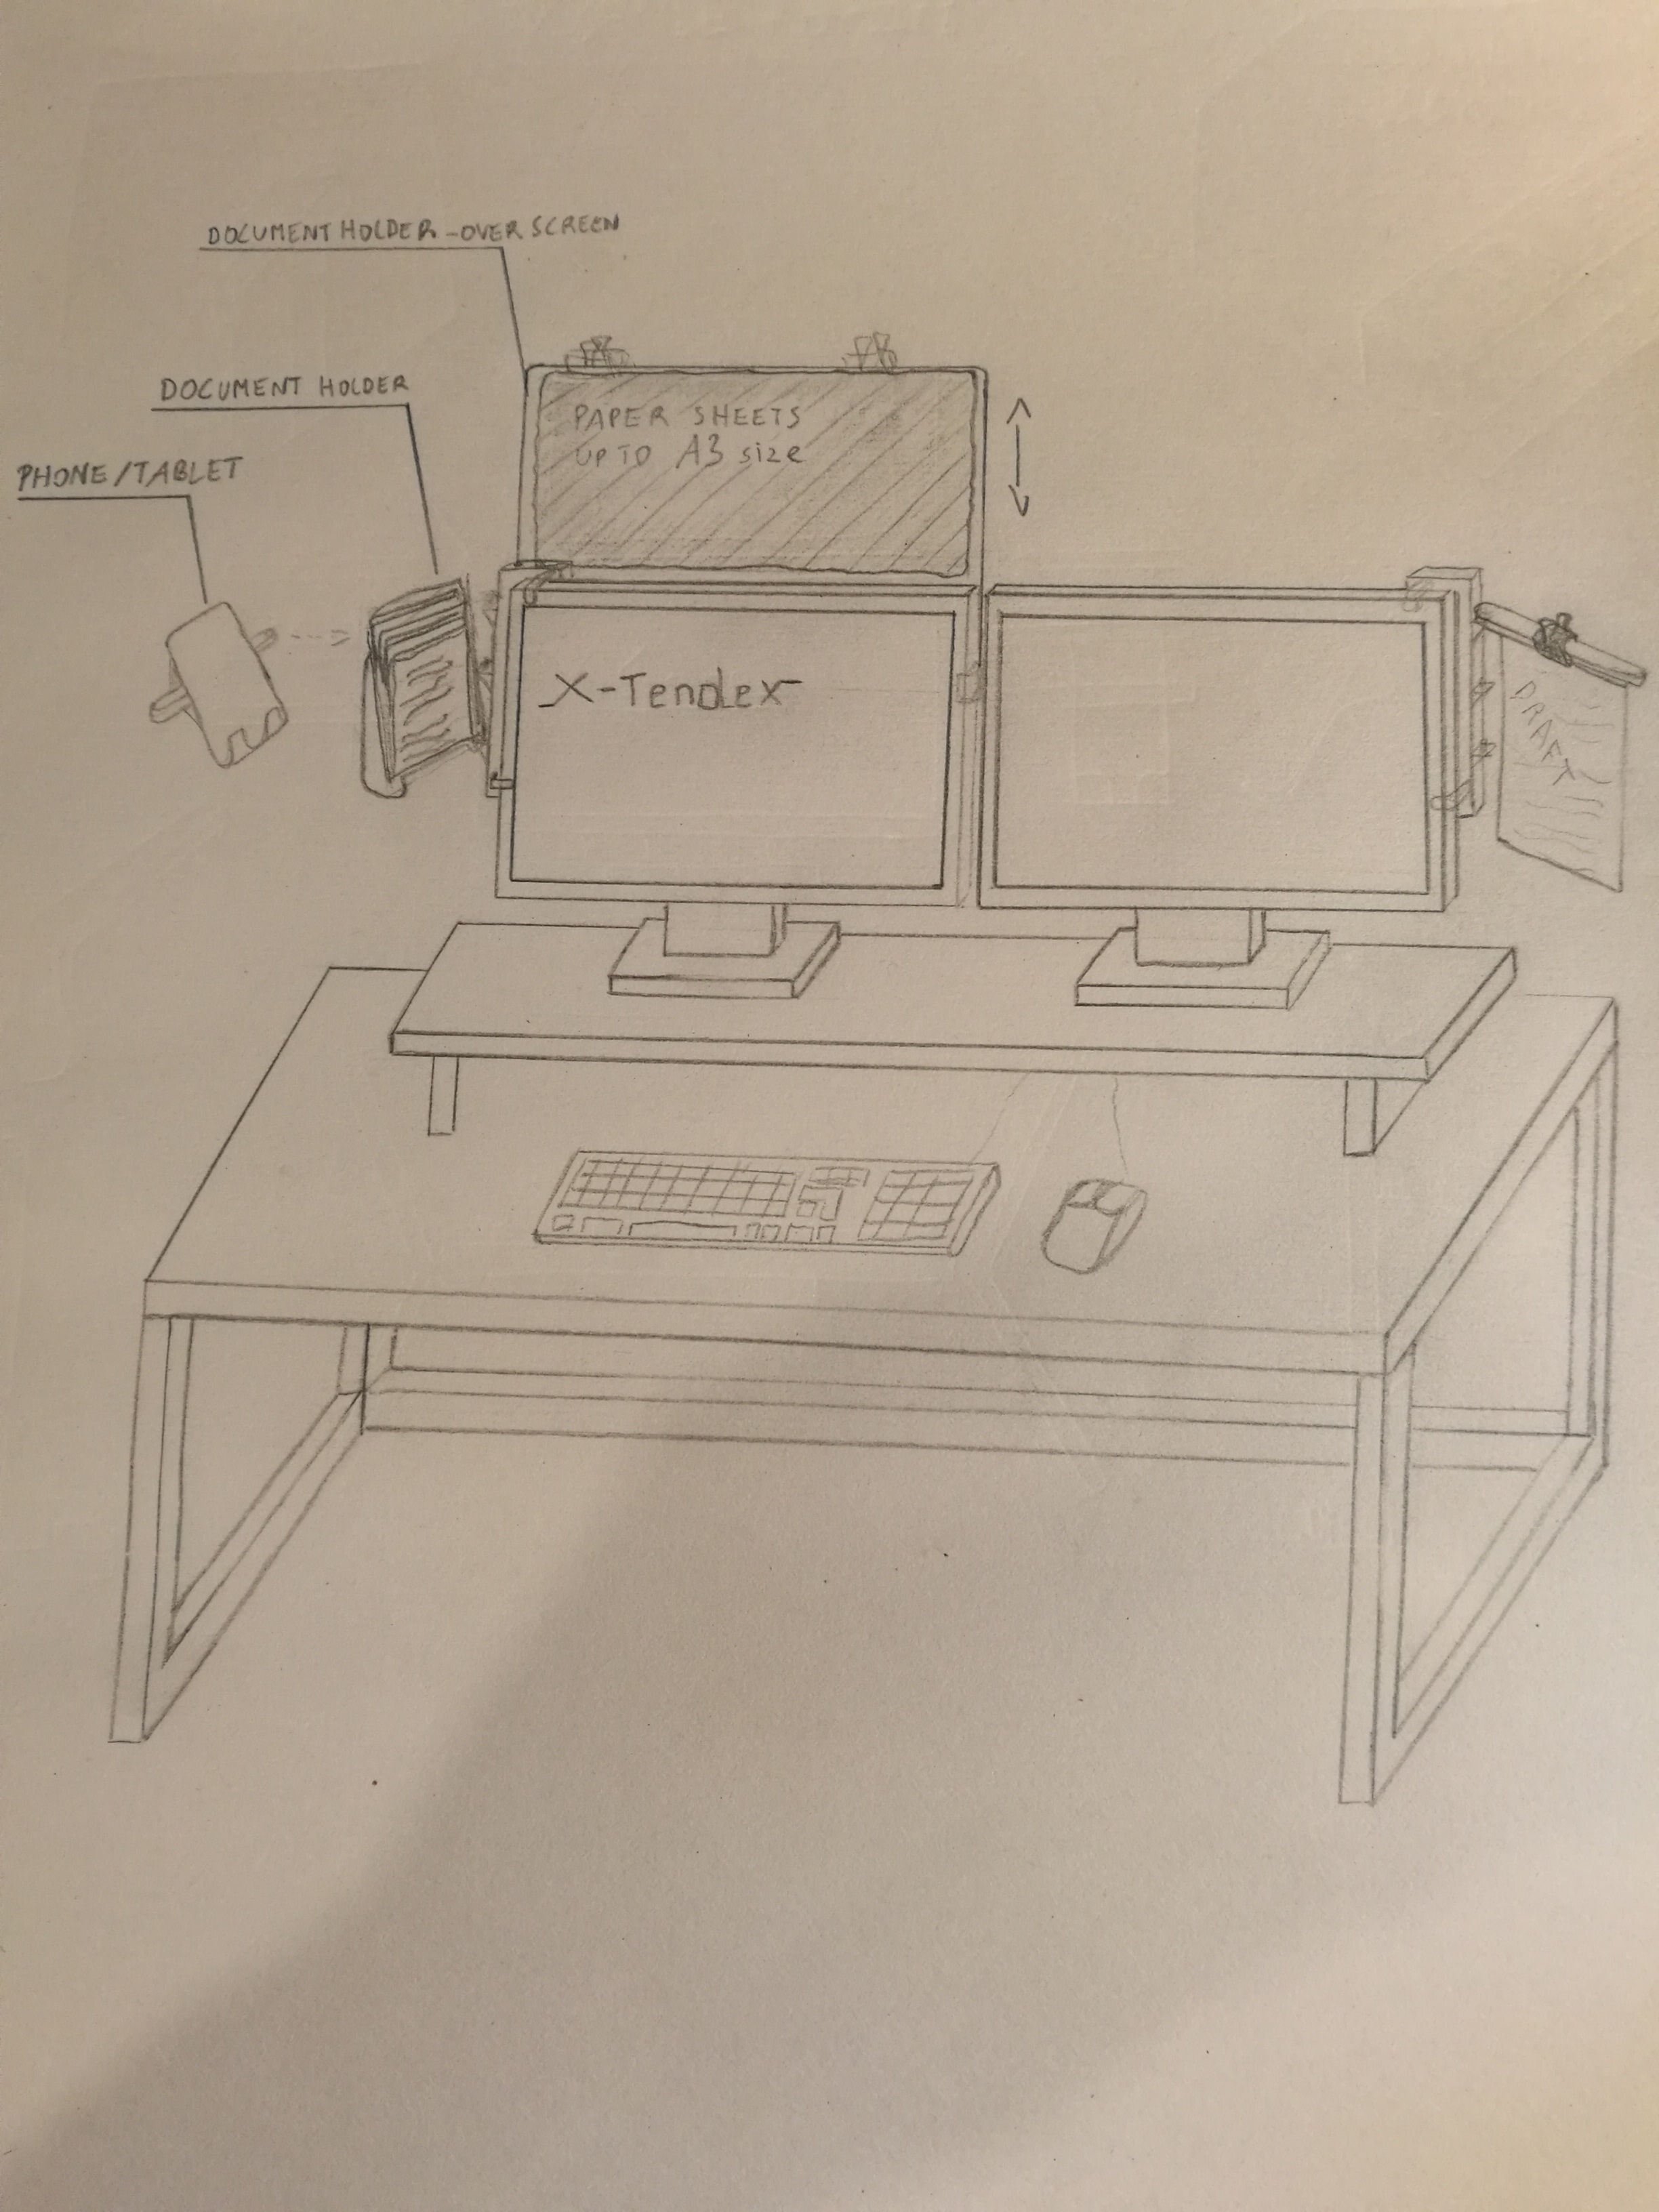 DOCUMENT HOLDER - OVER SCREEN
DOCUMENT HOLDER
PHONE/TABLET
PAPER SHEETS
UP TO A3 size
X-Tendex
DRAFT